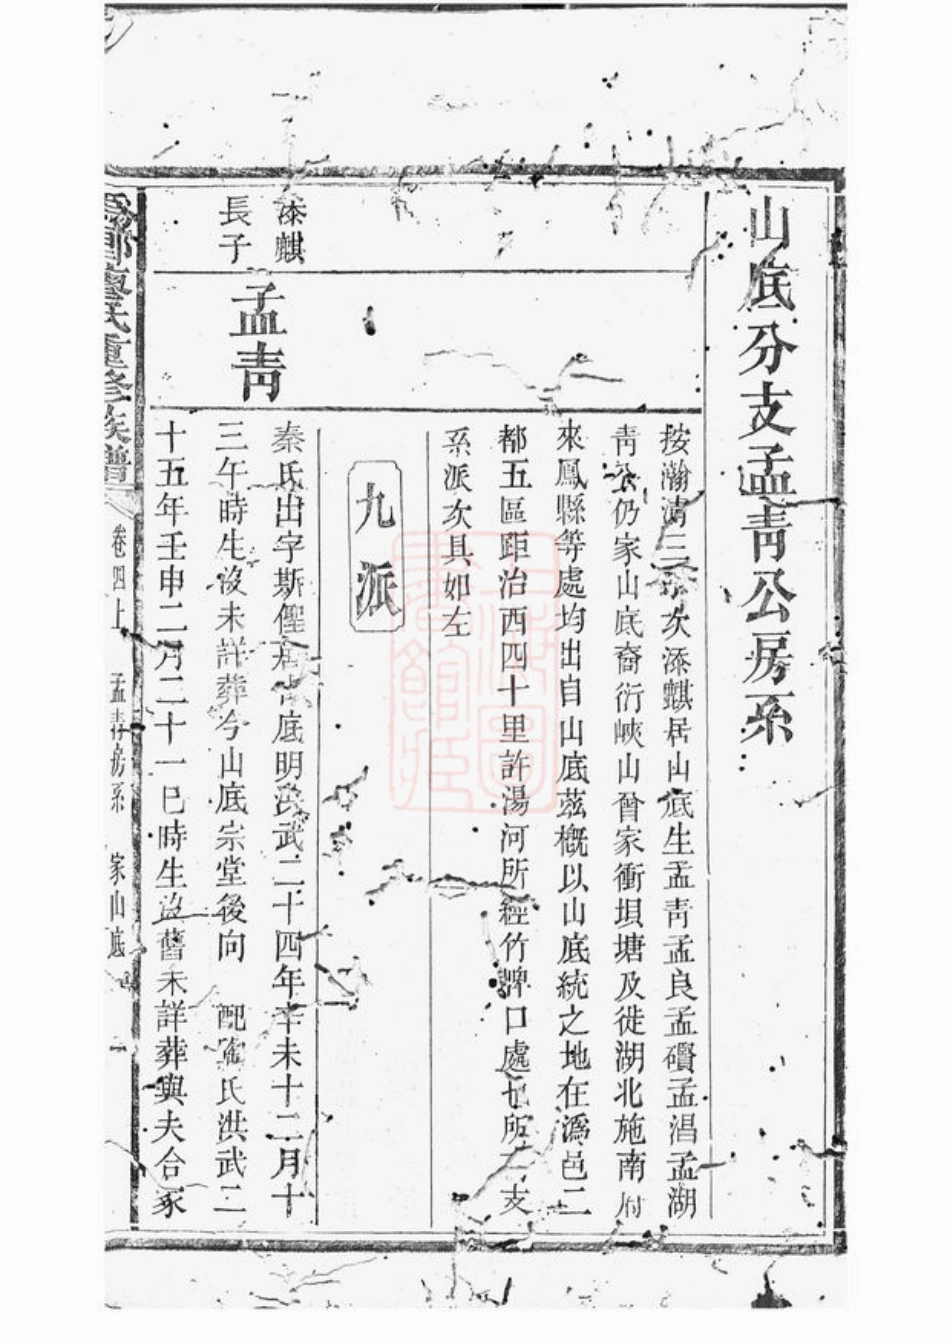 山底分支孟靑公房系
按瀚淸三次添麒居山底生孟靑孟良孟瓚孟淐孟湖
靑公仍家山底裔衍峽山曾家衝垻塘及徙湖北施南府
來鳳縣等處均出自山底茲槪以山底統之地在潙邑二
都五區距治西四十里許湯河所經竹牌口處也所支
系派次具如左
九派
添麒
長子
孟靑
秦氏出字斯俚居山底明洪武二十四年辛未十二月十
三午時生沒未詳葬今山底宗堂後向 配陶氏洪武二
十五年壬申二月二十一巳時生沒舊未詳葬與夫合冢
潙郡廖氏重修族譜 卷四上 孟靑房系 家山底 一
上海圖書館藏